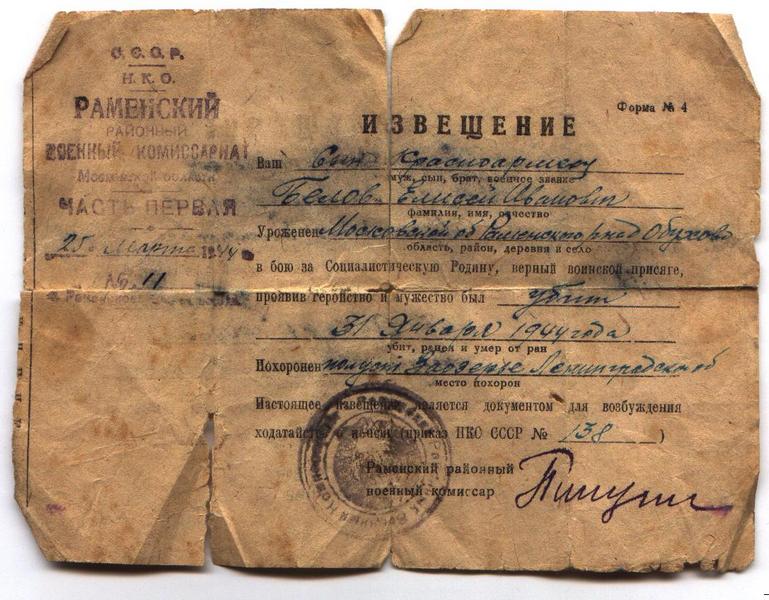 С.С.С.Р.
Н.К.О.
РАМЕНСКИЙ
РАЙОННЫЙ
ВОЕННЫЙ КОМИССАРИАТ
Московской области
ЧАСТЬ ПЕРВАЯ
25 марта 1944
№ 11
Форма № 4
ИЗВЕЩЕНИЕ
Ваш Сын Красноармеец
муж, сын, брат, военное звание
Белов Елисей Иванович
фамилия, имя, отчество
Уроженец Московской об Раменского р над Обухово
область, район, деревня и село
в бою за Социалистическую Родину, верный воинской присяге,
проявив геройство и мужество был убит
31 Января 1944 года
убит, ранен и умер от ран
Похоронен Заозерье Ленинградской об
место похорон
Настоящее извещение является документом для возбуждения
ходатайства о пенсии (приказ НКО СССР № 138 )
Раменский районный
военный комиссар